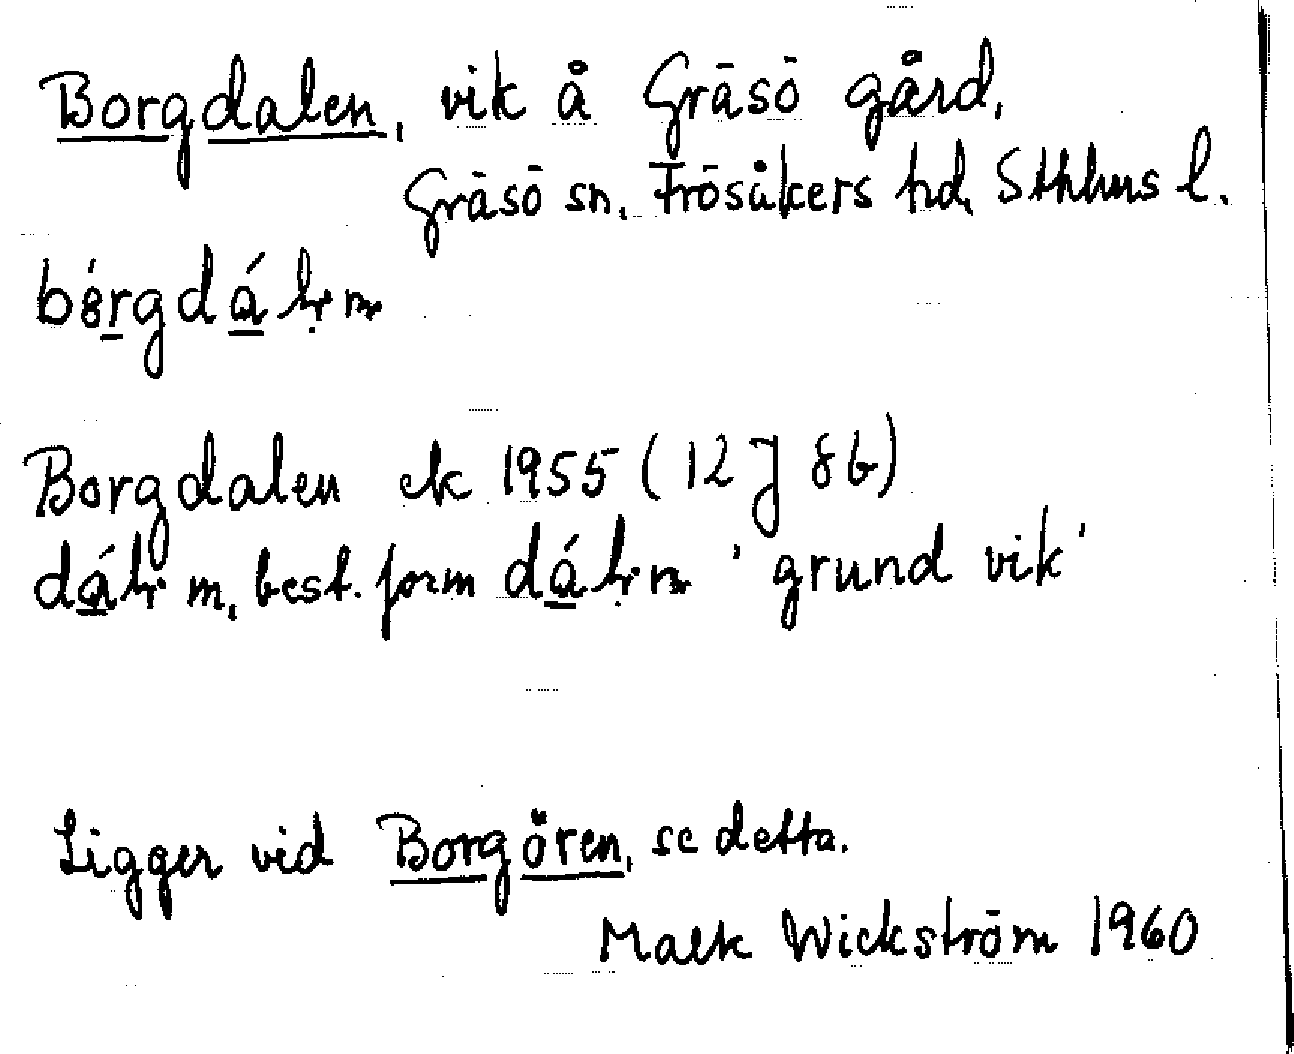 Borgdalen, vik å Gräsö gård,
Gräsö sn. Frösåkers hd, Sthlms l.
Borgdalen ek 1955 (12 J 8b)
m, best. form 'grund vik'
Ligger vid Borgören, se detta.
Wickström 1960